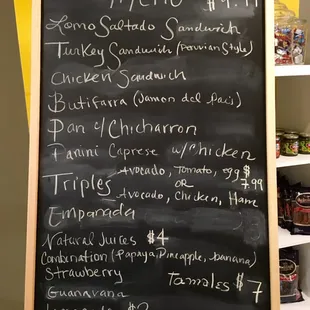 Lomo Saltado Sandwich
Turkey Sandwich (Peruvian Style)
Chicken Sandwich
Butifarra (Jamon del Pais)
Pan c/ Chicharron
Panini Caprese w/ Chicken
Triples Avocado, Tomato, egg $
OR 7.99
Avocado, Chicken, Ham
Empanada
Natural Juices $4
Combination (Papaya, Pineapple, banana)
Strawberry
Tamales $7
Guanavana